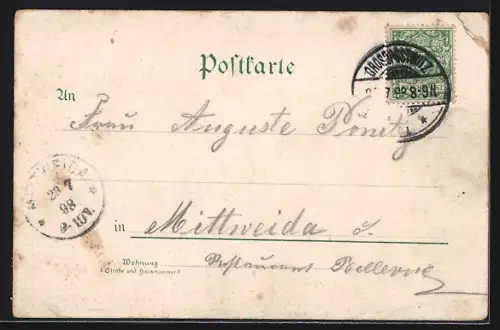 Postkarte
An
Frau Auguste Pönitz
in Mittweida
Restaurant Bellevue
Wohnung
(Straße und Hausnummer)
MITTWEIDA
23 7
98
9-10V.
7 98 8-9N